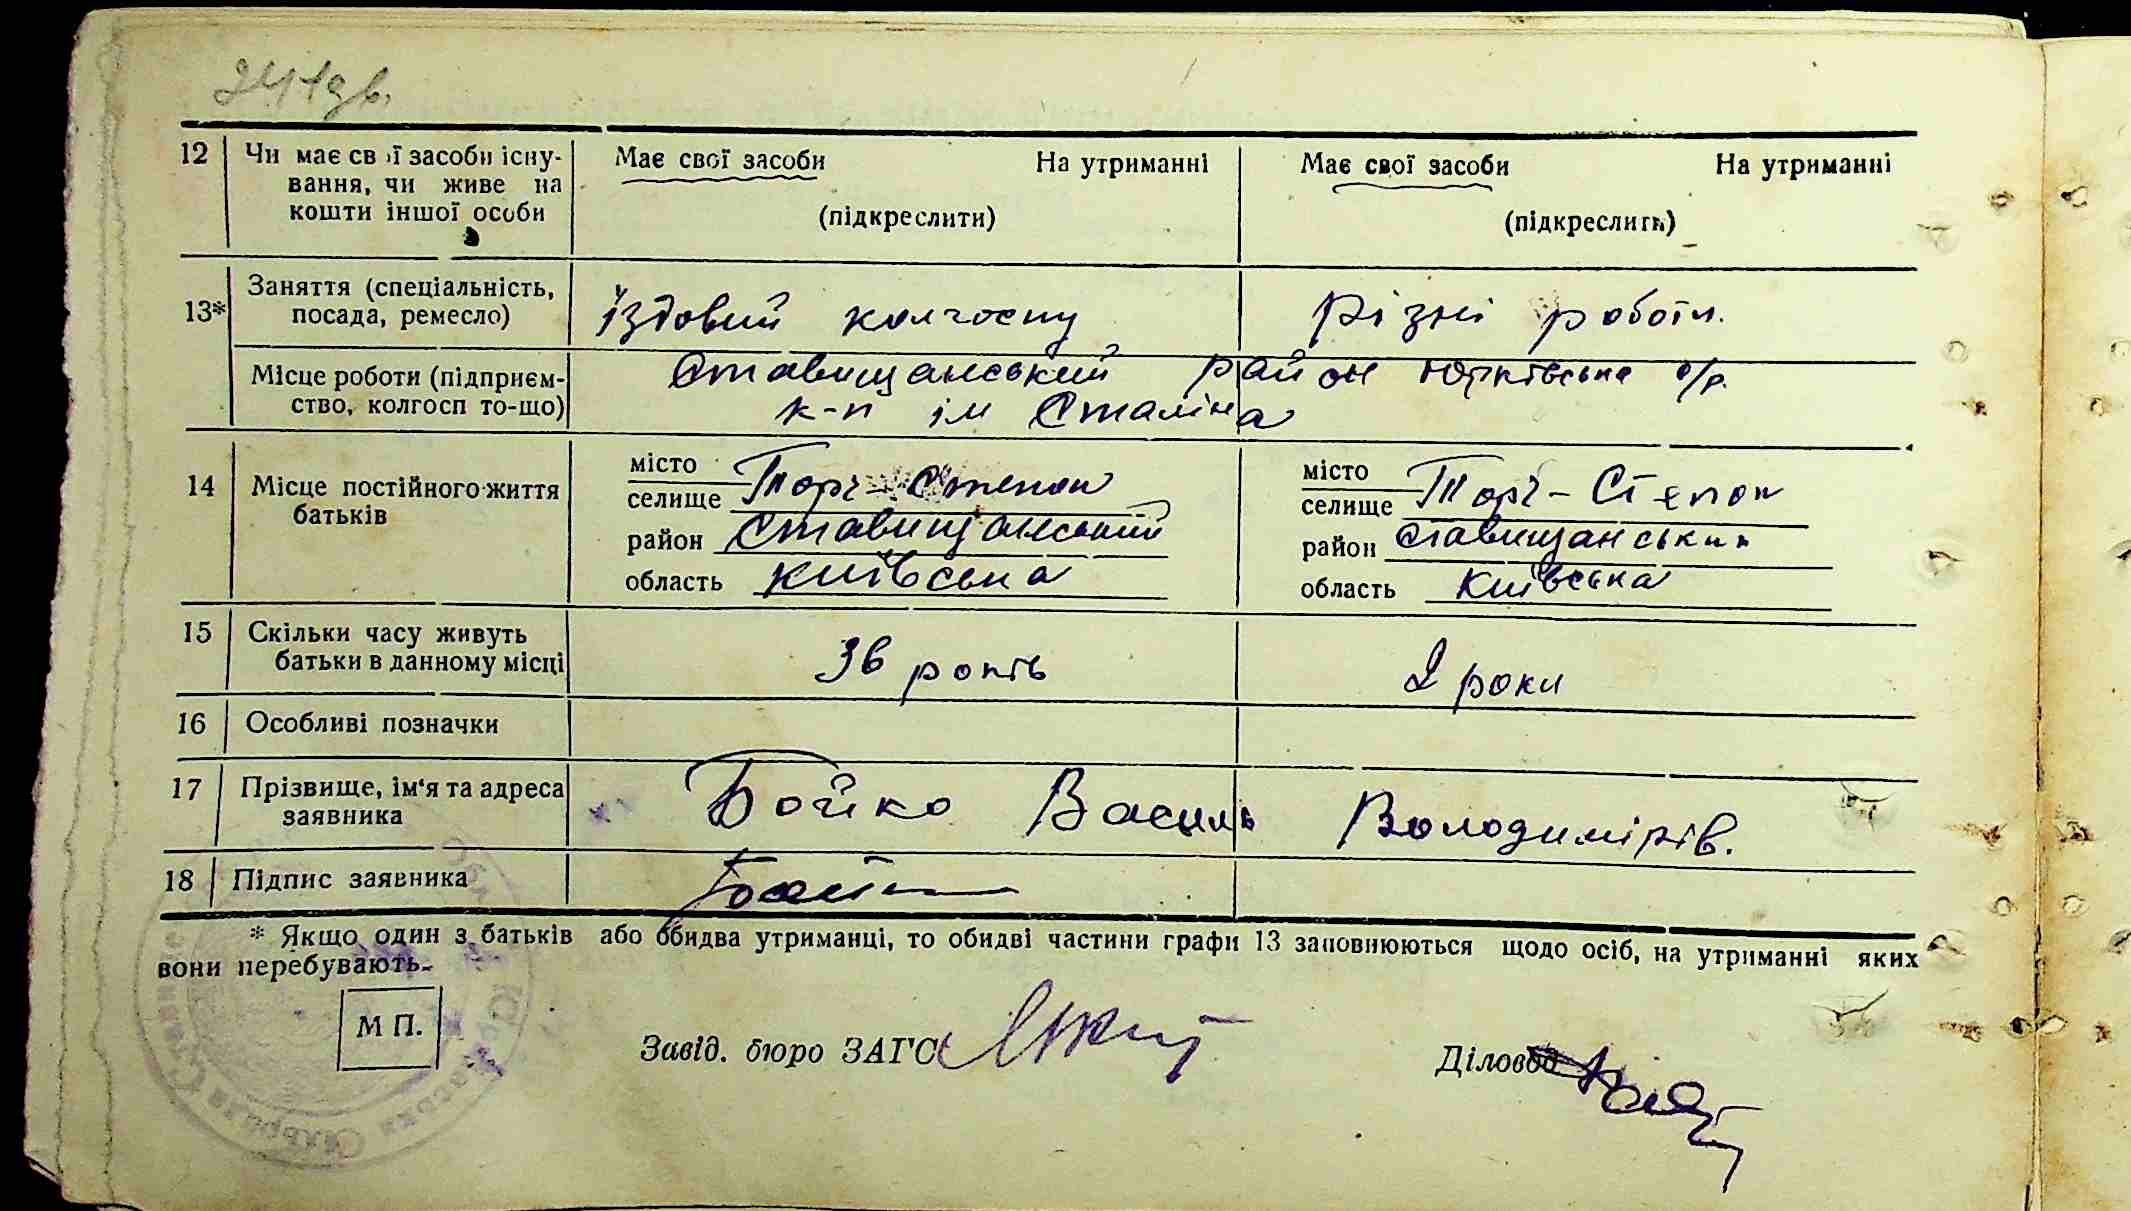 12 Чи має св ї засоби існу- Має свої засоби На утриманні Має свої засоби На утриманні
вання, чи живе на
кошти іншої особи (підкреслити) (підкреслить)
13* Заняття (спеціальність, їздовий колгоспу Різні роботи.
посада, ремесло)
Місце роботи (підприєм- Ставищанський район Юрківська с/р.
ство, колгосп то-що) к-п ім Сталіна
14 Місце постійного життя місто Торч-Степок місто Торч-Степок
батьків селище селище
район Ставищанський район Ставищанський
область Київська область Київська
15 Скільки часу живуть 36 років 2 роки
батьки в данному місці
16 Особливі позначки
17 Прізвище, ім'я та адреса Бойко Василь Володимірів.
заявника
18 Підпис заявника
* Якщо один з батьків або обидва утриманці, то обидві частини графи 13 заповнюються щодо осіб, на утриманні яких
вони перебувають.
М П. Завід. бюро ЗАГС Діловод